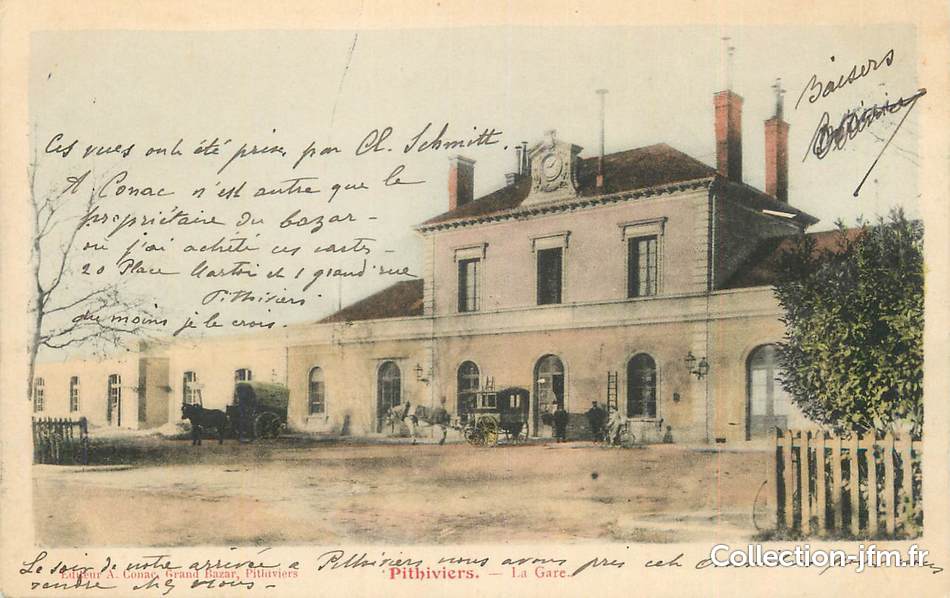 Ces vues ont été prises par Cl. Schmitt.
A Conac n'est autre que le
propriétaire du bazar -
où j'ai acheté ces cartes -
20 Place Martroi et 1 grand' rue
Pithiviers
du moins je le crois.
Baisers
Le soir de notre arrivée a Pithiviers nous avons pris cet pour nous
rendre chez nous.
Editeur A. Conac, Grand Bazar, Pithiviers
Pithiviers. — La Gare.
Collection-jfm.fr